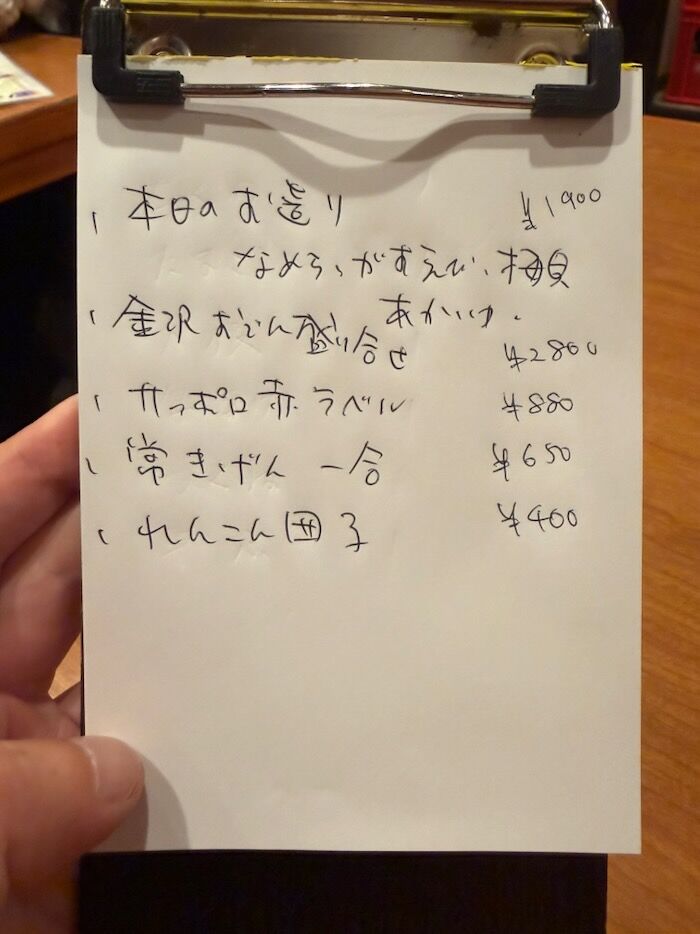 、本日のお造り ¥1900
なめろう、がすえび、梅貝
あかいか、
、金沢おでん盛り合せ ¥2800
、サッポロ赤ラベル ¥880
、常きげん 一合 ¥650
、れんこん団子 ¥400